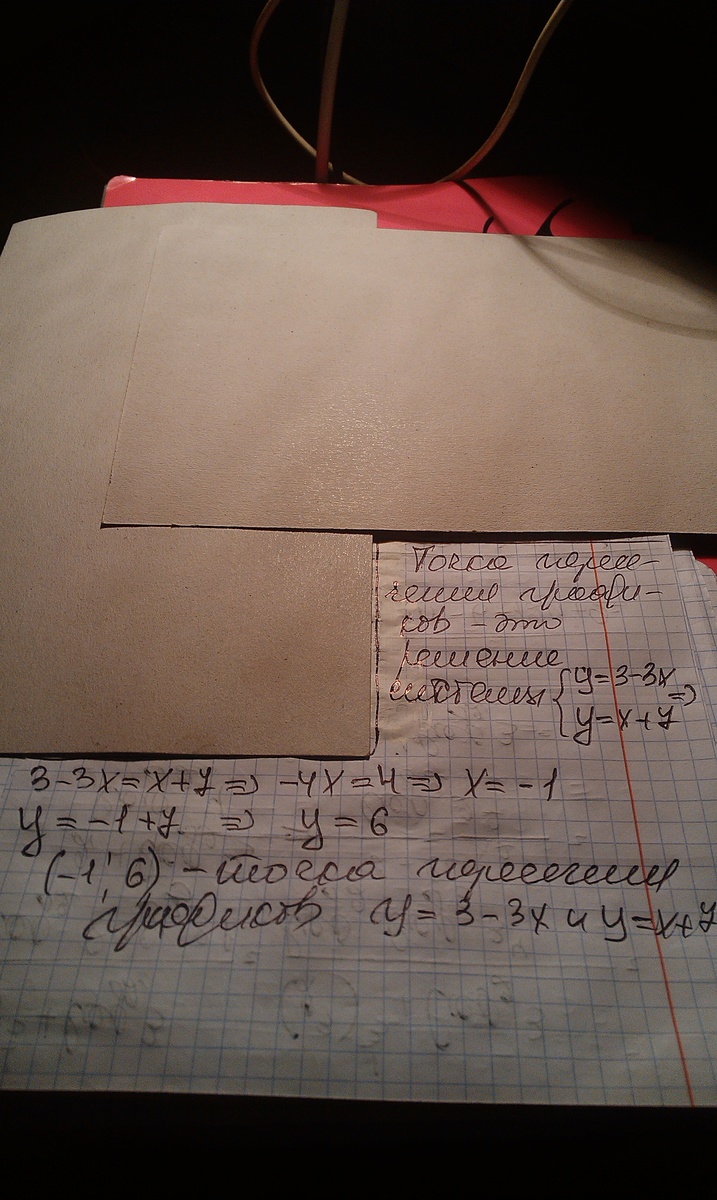 Точка пересе-
чения графи-
ков - это
решение
системы { y=3-3x
y=x+7 =>
3-3x=x+7 => -4x=4 => x=-1
y=-1+7 => y=6
(-1; 6) - точка пересечения
графиков y=3-3x и y=x+7